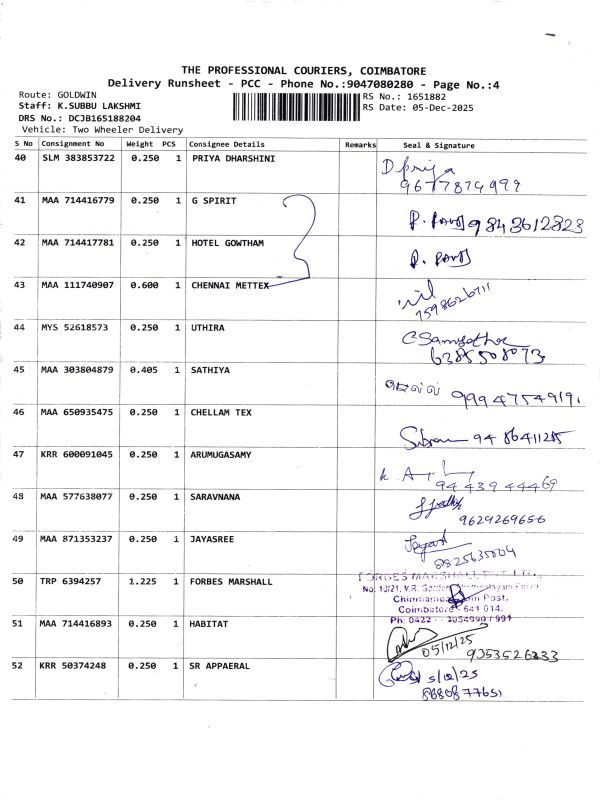 THE PROFESSIONAL COURIERS, COIMBATORE
Delivery Runsheet - PCC - Phone No.:9047080280 - Page No.:4
Route: GOLDWIN
RS No.: 1651882
Staff: K.SUBBU LAKSHMI
RS Date: 05-Dec-2025
DRS No.: DCJB165188204
Vehicle: Two Wheeler Delivery
S No Consignment No Weight PCS Consignee Details Remarks Seal & Signature
40 SLM 383853722 0.250 1 PRIYA DHARSHINI D.priya
9677874999
41 MAA 714416779 0.250 1 G SPIRIT 9843612823
42 MAA 714417781 0.250 1 HOTEL GOWTHAM
43 MAA 111740907 0.600 1 CHENNAI METTEX
7598626711
44 MYS 52618573 0.250 1 UTHIRA
6385508073
45 MAA 303804879 0.405 1 SATHIYA 9994754919
46 MAA 650935475 0.250 1 CHELLAM TEX 9486411285
47 KRR 600091045 0.250 1 ARUMUGASAMY
9443944469
48 MAA 577638077 0.250 1 SARAVNANA
9629269656
49 MAA 871353237 0.250 1 JAYASREE
8825635004
50 TRP 6394257 1.225 1 FORBES MARSHALL FORBES MARSHALL PVT. LTD.,
No. 10/21, V.R. Garden
Post,
Coimbatore - 641 014.
Ph: 0422 -
51 MAA 714416893 0.250 1 HABITAT
05/12/25 9353526233
52 KRR 50374248 0.250 1 SR APPAERAL 5/12/25
8880877651